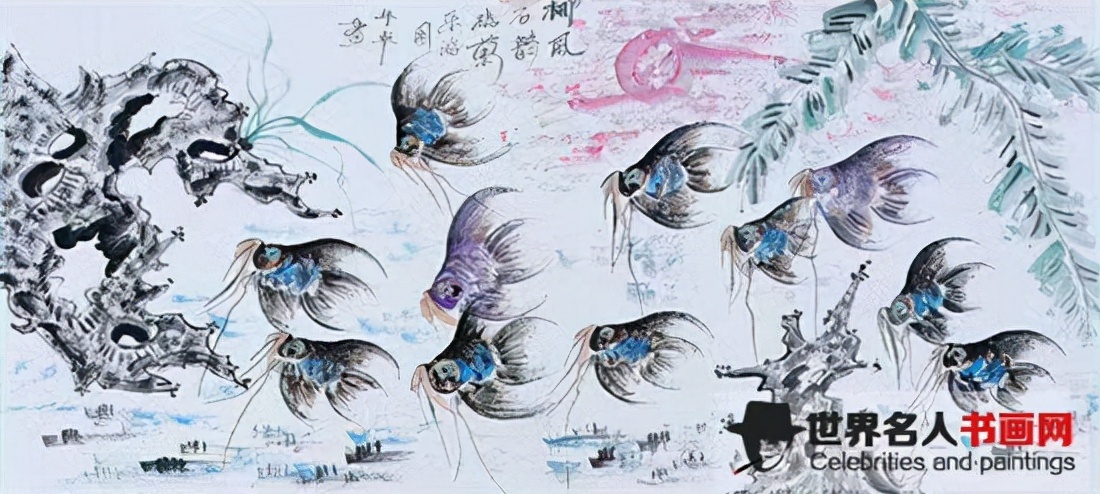 柳風
石韵
乐游
图
世界名人书画网
Celebrities and paintings